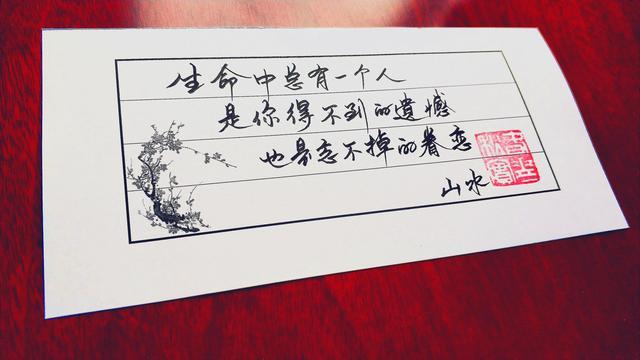 生命中总有一个人
是你得不到的遺憾
也是忘不掉的眷恋
山水